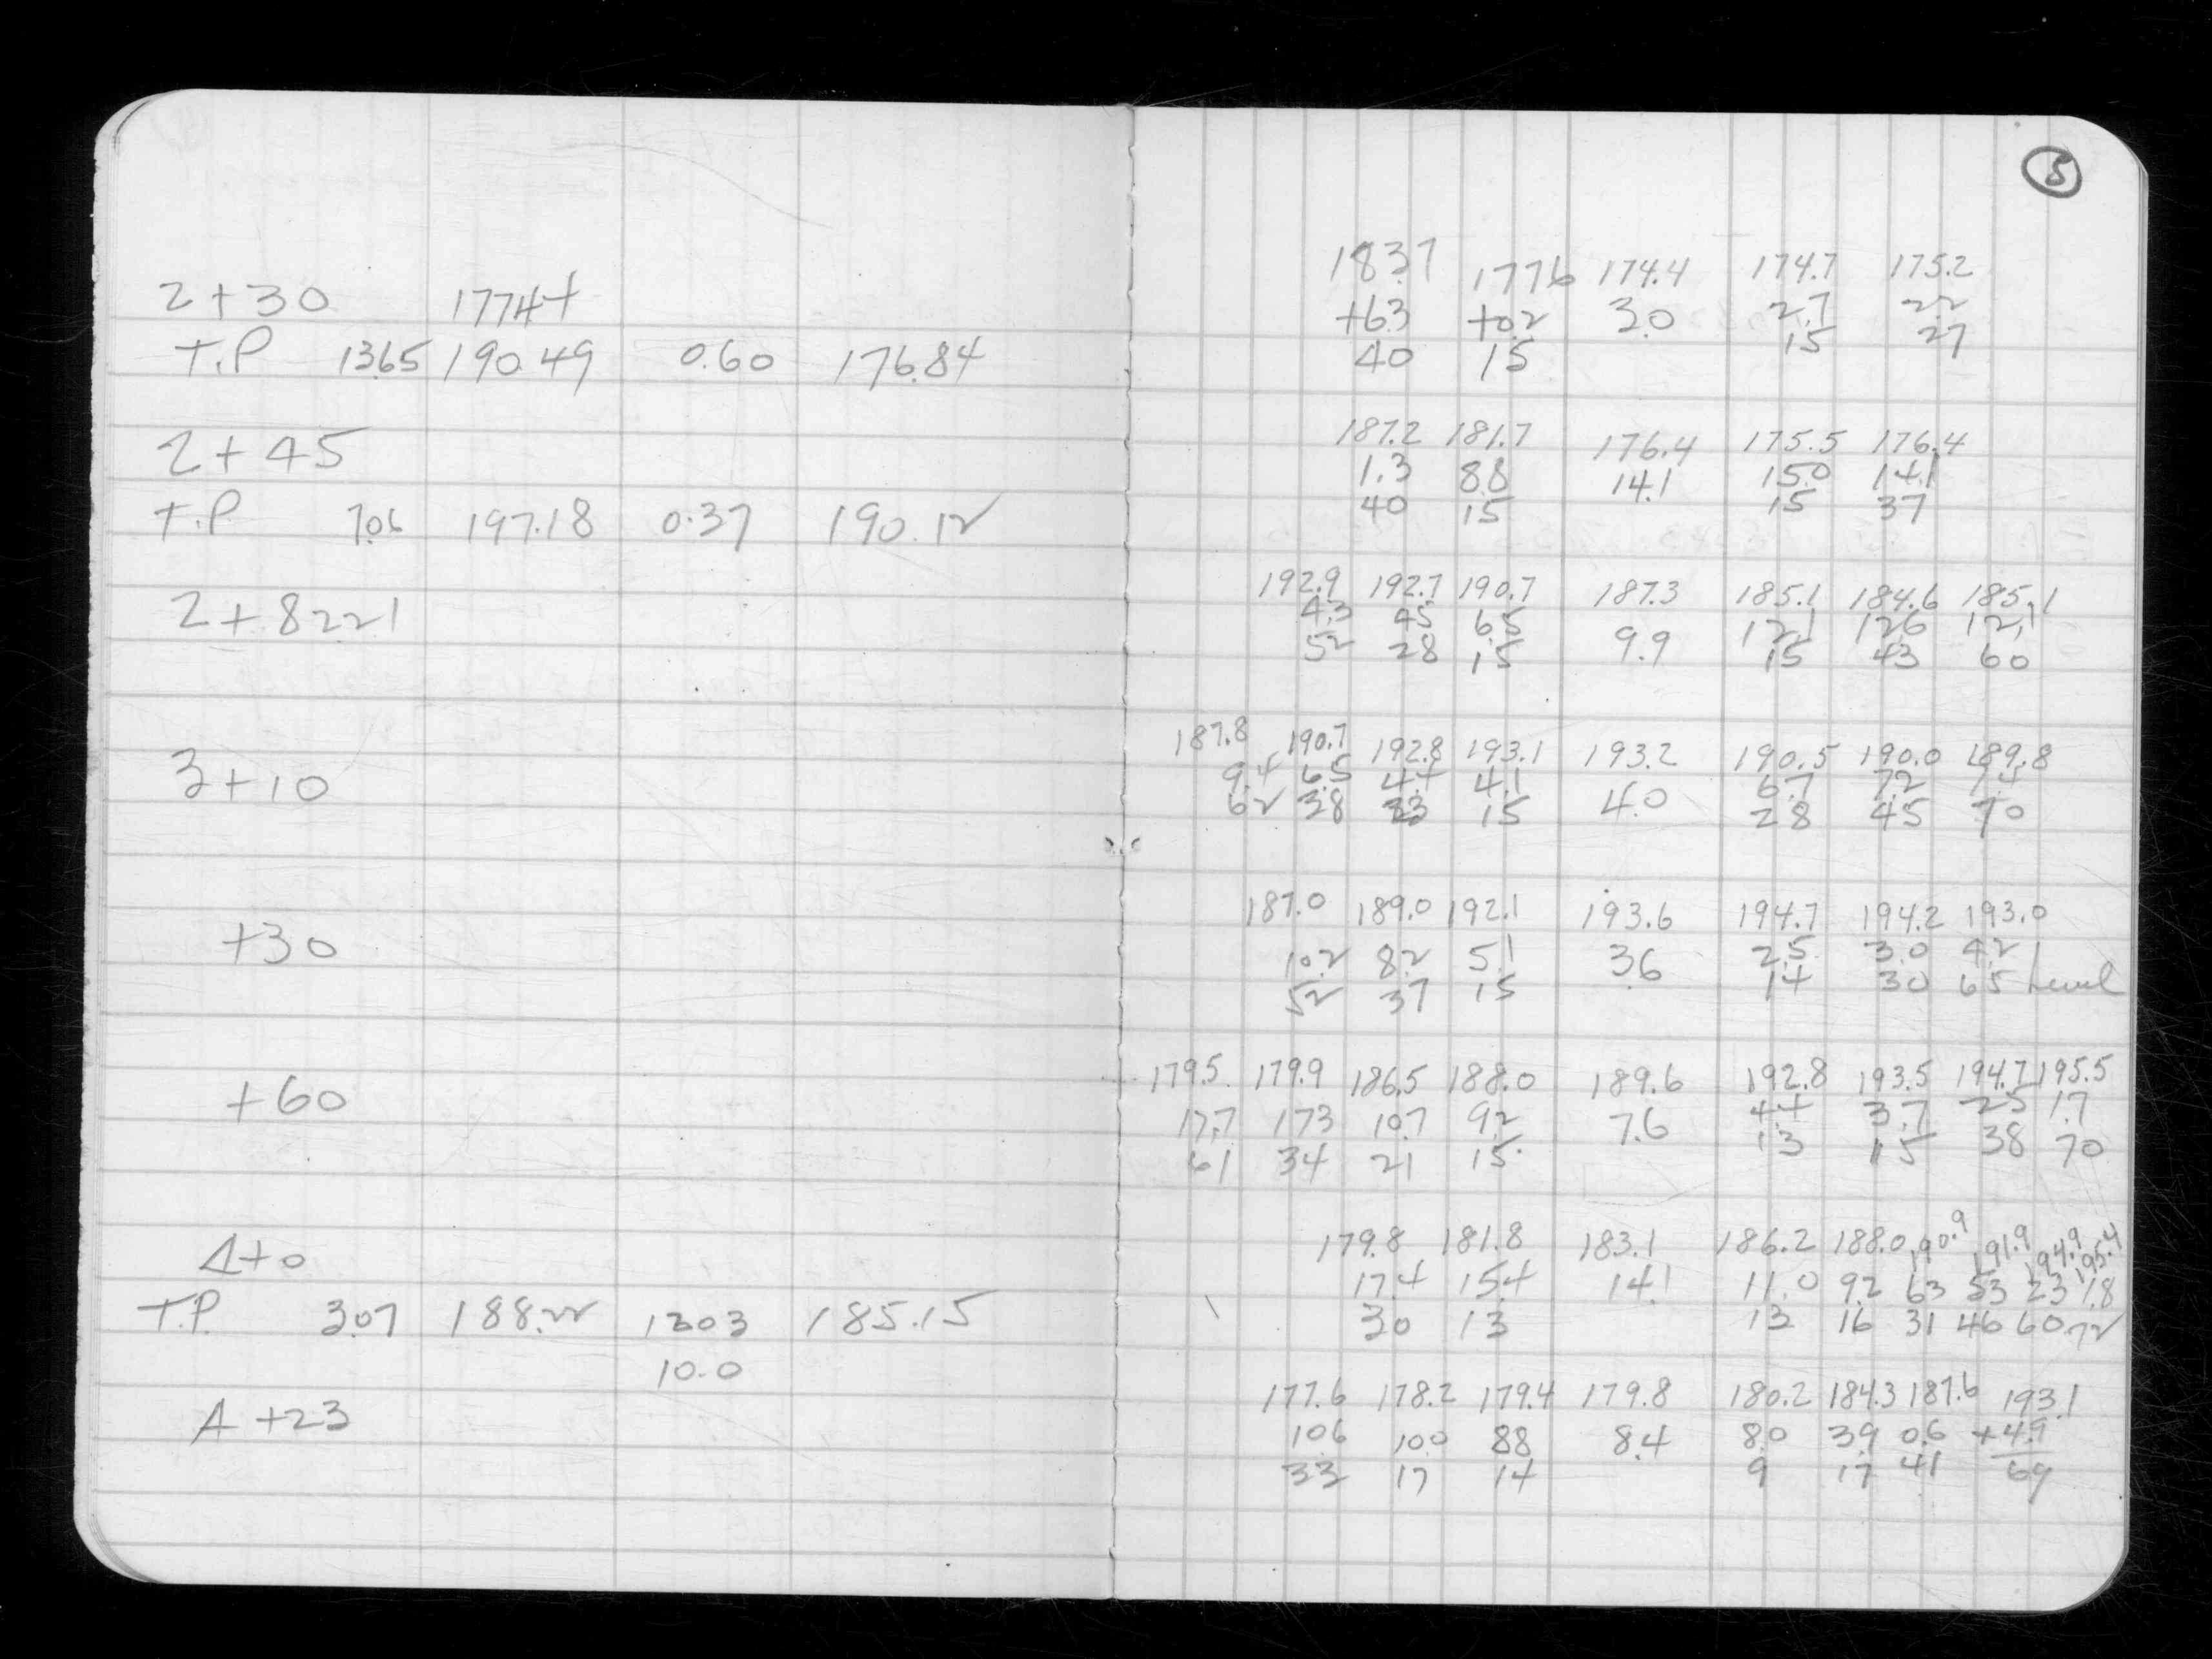 5
183.7 177.6 174.4 174.7 175.2
2+30 177.44
+6.3 +0.2 3.0 2.7 2.2
40 15 15 27
T.P 13.65 190.49 0.60 176.84
187.2 181.7 176.4 175.5 176.4
2+45
1.3 8.8 14.1 15.0 14.1
40 15 15 37
T.P 7.06 197.18 0.37 190.12
192.9 192.7 190.7 187.3 185.1 184.6 185.1
2+8221
4.3 4.5 6.5 9.9 12.1 12.6 12.1
52 28 15 15 43 60
187.8 190.7 192.8 193.1 193.2 190.5 190.0 189.8
3+10
9.4 6.5 4.4 4.1 4.0 6.7 7.2 7.4
62 38 23 15 28 45 70
187.0 189.0 192.1 193.6 194.7 194.2 193.0
+30
10.2 8.2 5.1 3.6 2.5 3.0 4.2
52 37 15 14 30 65 Level
179.5 179.9 186.5 188.0 189.6 192.8 193.5 194.7 195.5
+60
17.7 17.3 10.7 9.2 7.6 4.4 3.7 2.5 1.7
61 34 21 15 13 15 38 70
179.8 181.8 183.1 186.2 188.0 190.9 191.9 194.9 195.4
4+0
17.4 15.4 14.1 11.0 9.2 6.3 5.3 2.3 1.8
30 13 13 16 31 46 60 72
T.P. 3.07 188.22 12.03 185.15
10.0
177.6 178.2 179.4 179.8 180.2 184.3 187.6 193.1
4+23
10.6 10.0 8.8 8.4 8.0 3.9 0.6 +4.9
33 17 14 9 17 41 69